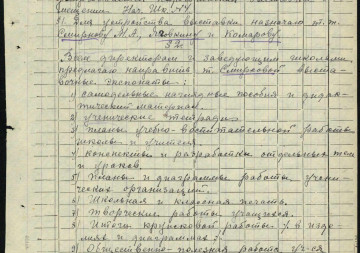 мещении Нач. Шк. №4.
11. Для устройства выставки назначаю т.т.
Смирнову М.А., и Комарову.
§ 2.
Всем директорам и заведующим школами
предлагаю направить т. Смирновой выста-
вочные экспонаты:
1) самодельные наглядные пособия и дидак-
тический материал.
2) ученические тетради
3) планы учебно-воспитательной работы
школы и учителя.
4) конспекты и разработки отдельных тем
и уроков.
5) Планы и диаграммы работы учени-
ческих организаций.
6) Школьная и классная печать.
7) Творческие работы учащихся.
8) Итоги кружковой работы в изде-
лиях и диаграммах.
9) Общественно-полезная работа уч-ся